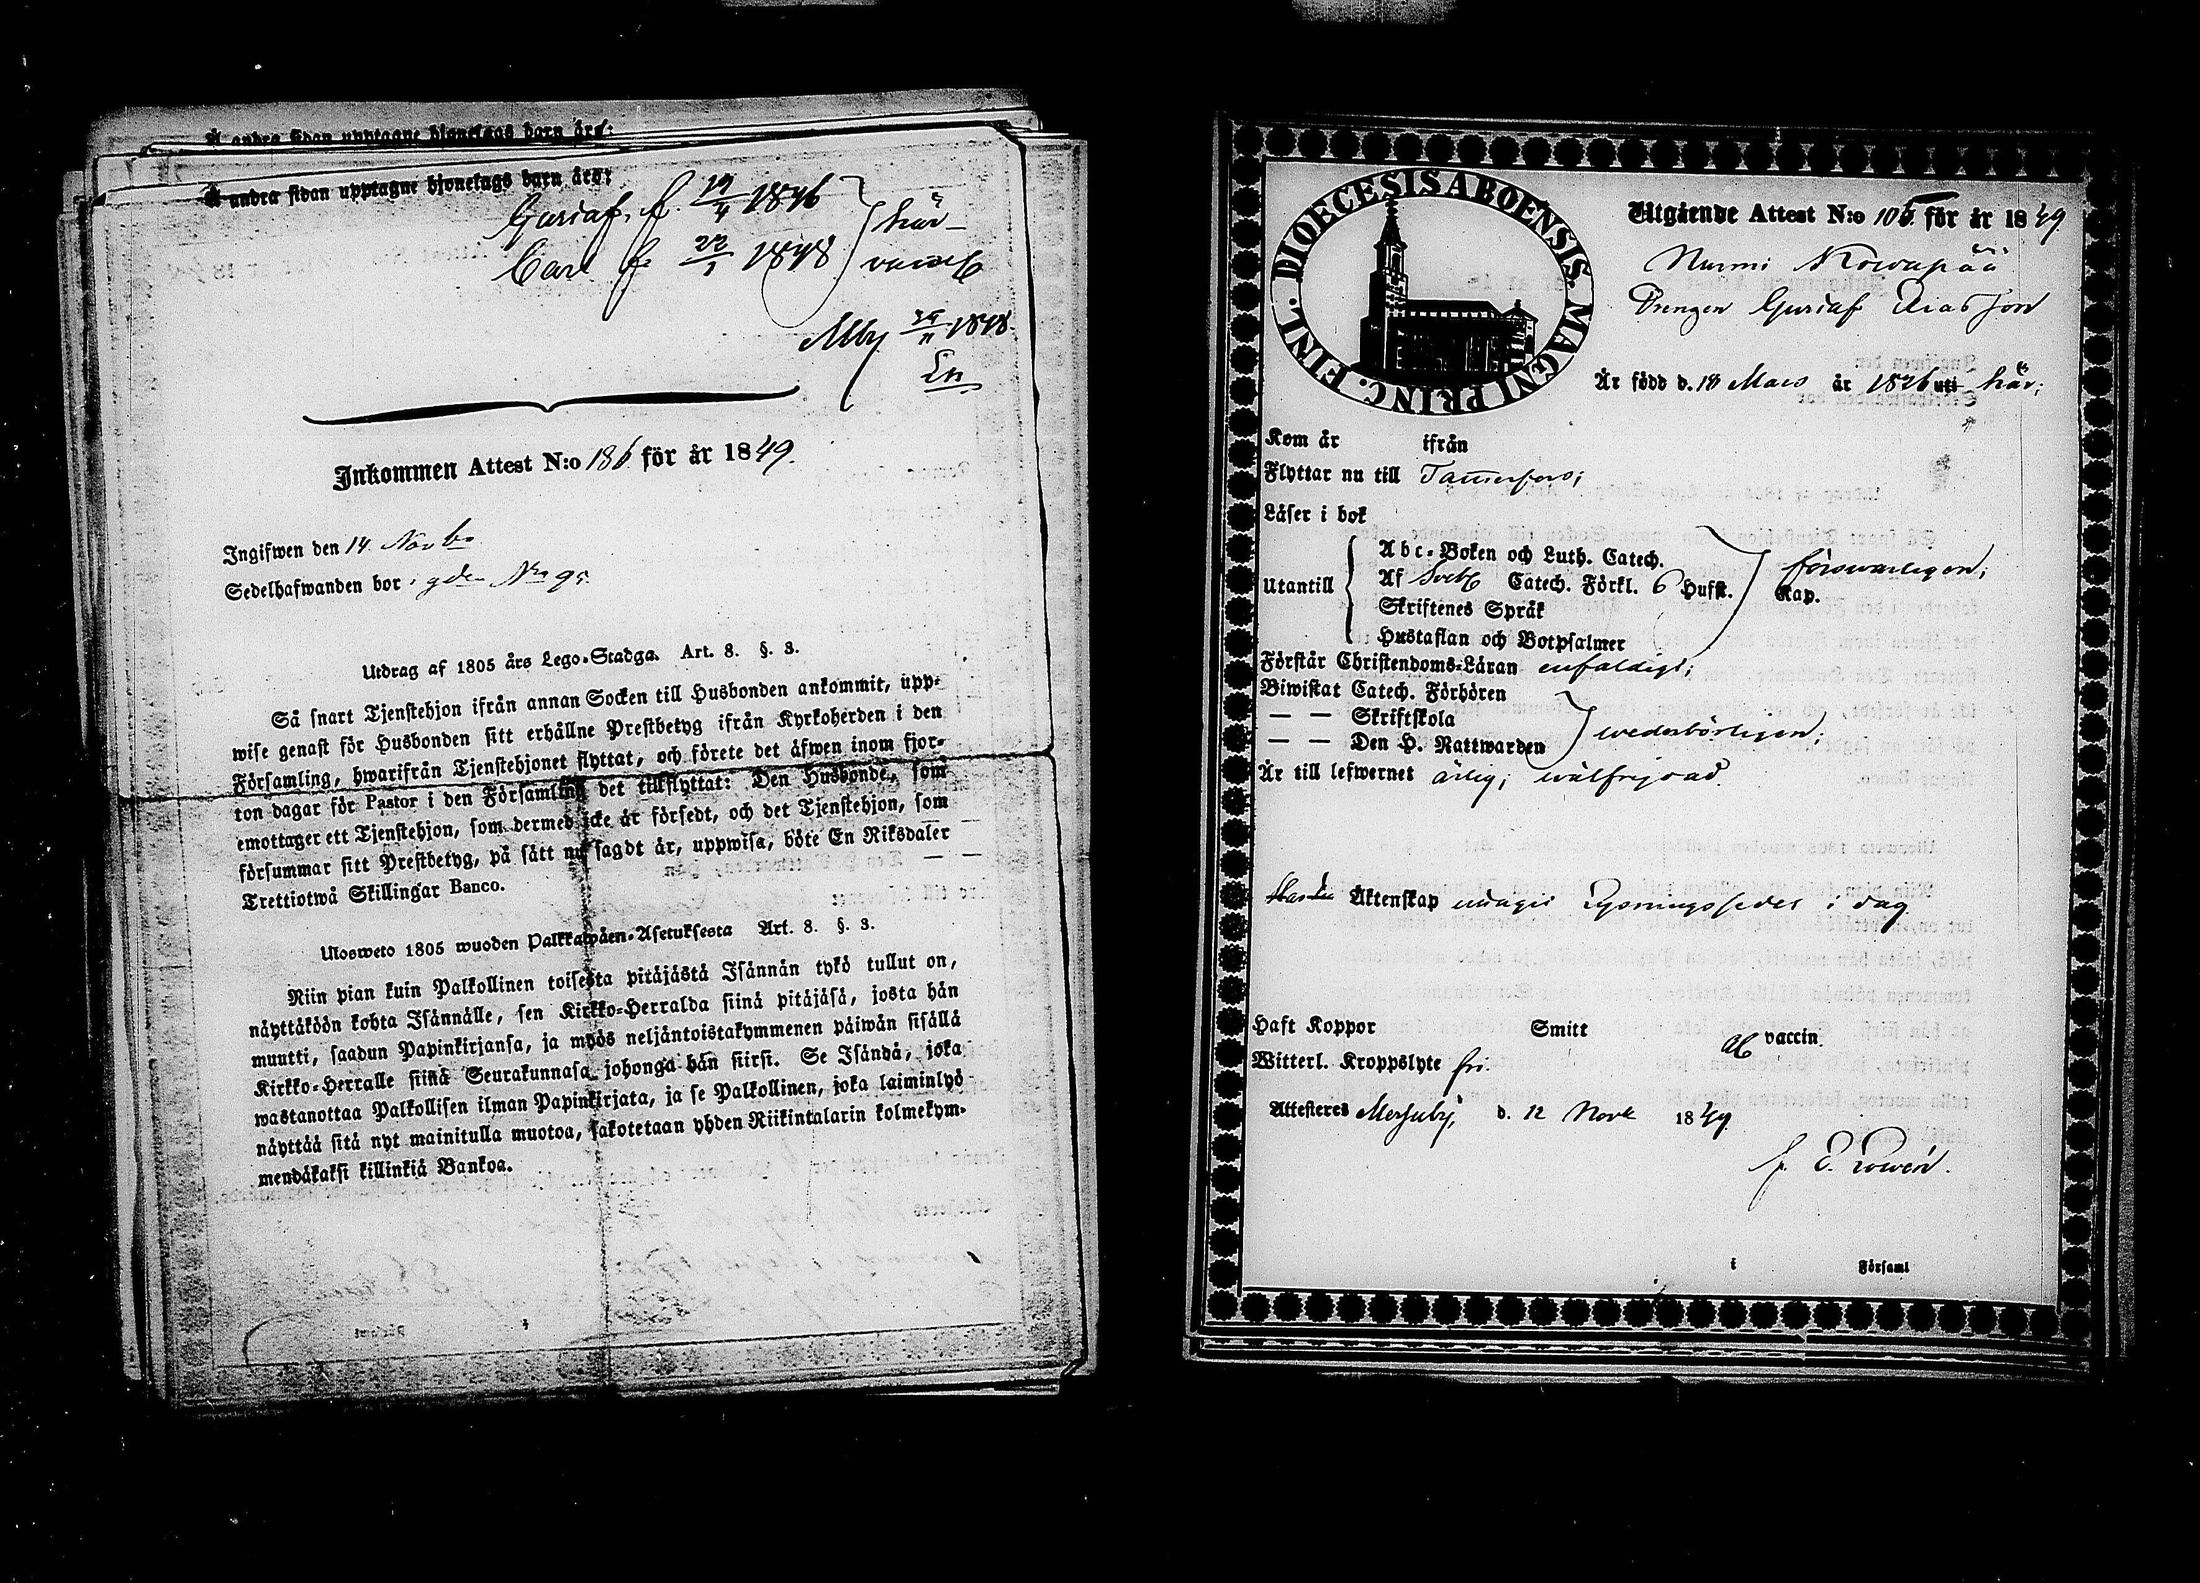 Å andra sidan upptagne hjonelags barn äro:
Å andra sidan upptagne hjonelags barn äro:
Gustaf f. 19/4 1846
Carl f. 22/1 1848
här-
Mby 29/11 1848.
Ln
Inkommen Attest N:o 186. för år 1849.
Ingifwen den 14 Novbr
Sedelhafwanden bor i gden No 95.
Utdrag af 1805 års Lego-Stadga. Art. 8. §. 3.
Så snart Tjenstehjon ifrån annan Socken till Husbonden ankommit, upp-
wise genast för Husbonden sitt erhållne Prestbetyg ifrån Kyrkoherden i den
Församling, hwarifrån Tjenstehjonet flyttat, och förete det äfwen inom fjor-
ton dagar för Pastor i den Församling det tillflyttat: Den Husbonde, som
emottager ett Tjenstehjon, som dermed icke är försedt, och det Tjenstehjon, som
försummar sitt Prestbetyg, på sätt nu sagdt är, uppwisa, böte En Riksdaler
Trettiotwå Skillingar Banco.
Ulosweto 1805 wuoden Palkkawäen-Asetuksesta Art. 8. §. 3.
Niin pian kuin Palkollinen toisesta pitäjästä Isännän tykö tullut on,
näyttäköön kohta Isännälle, sen Kirkko-Herralda siinä pitäjäsä, josta hän
muutti, saadun Papinkirjansa, ja myös neljäntoistakymmenen päiwän sisällä
Kirkko-Herralle siinä Seurakunnasa johonga hän siirsi. Se Isändä, joka
wastanottaa Palkollisen ilman Papinkirjata, ja se Palkollinen, joka laiminlyö
näyttää sitä nyt mainitulla muotoa, sakotetaan yhden Riikintalarin kolmekym-
mendäkaksi killinkiä Bankoa.
DIOECESIS ABOENSIS. MAGNI PRINC. FINL.
Utgående Attest N:o 105. för år 1849.
Nurmi Kowapää
Drengen Gustaf Eliasson
Är född d. 18 Mars år 1826 uti här;
Kom år ifrån
Flyttar nu till Tammerfors;
Läser i bok
Utantill
Abc-Boken och Luth. Catech.
Af Sveb. Catech. Förkl. 6 Hufst. Kap.
Skriftenes Språk
Hustaflan och Botpsalmer
försvarligen;
Förstår Christendoms-Läran enfaldigt;
Biwistat Catech. Förhören
— — Skriftskola
— — Den H. Nattwarden
wederbörligen;
Är till lefwernet ärlig; wälfrejdad.
Äktenskap uttagit Lysningssedel i dag
Haft Koppor Smitt vaccin.
Witterl. Kroppslyte fri.
Attesteres Messuby, d. 12 Nov 1849.
i Församl